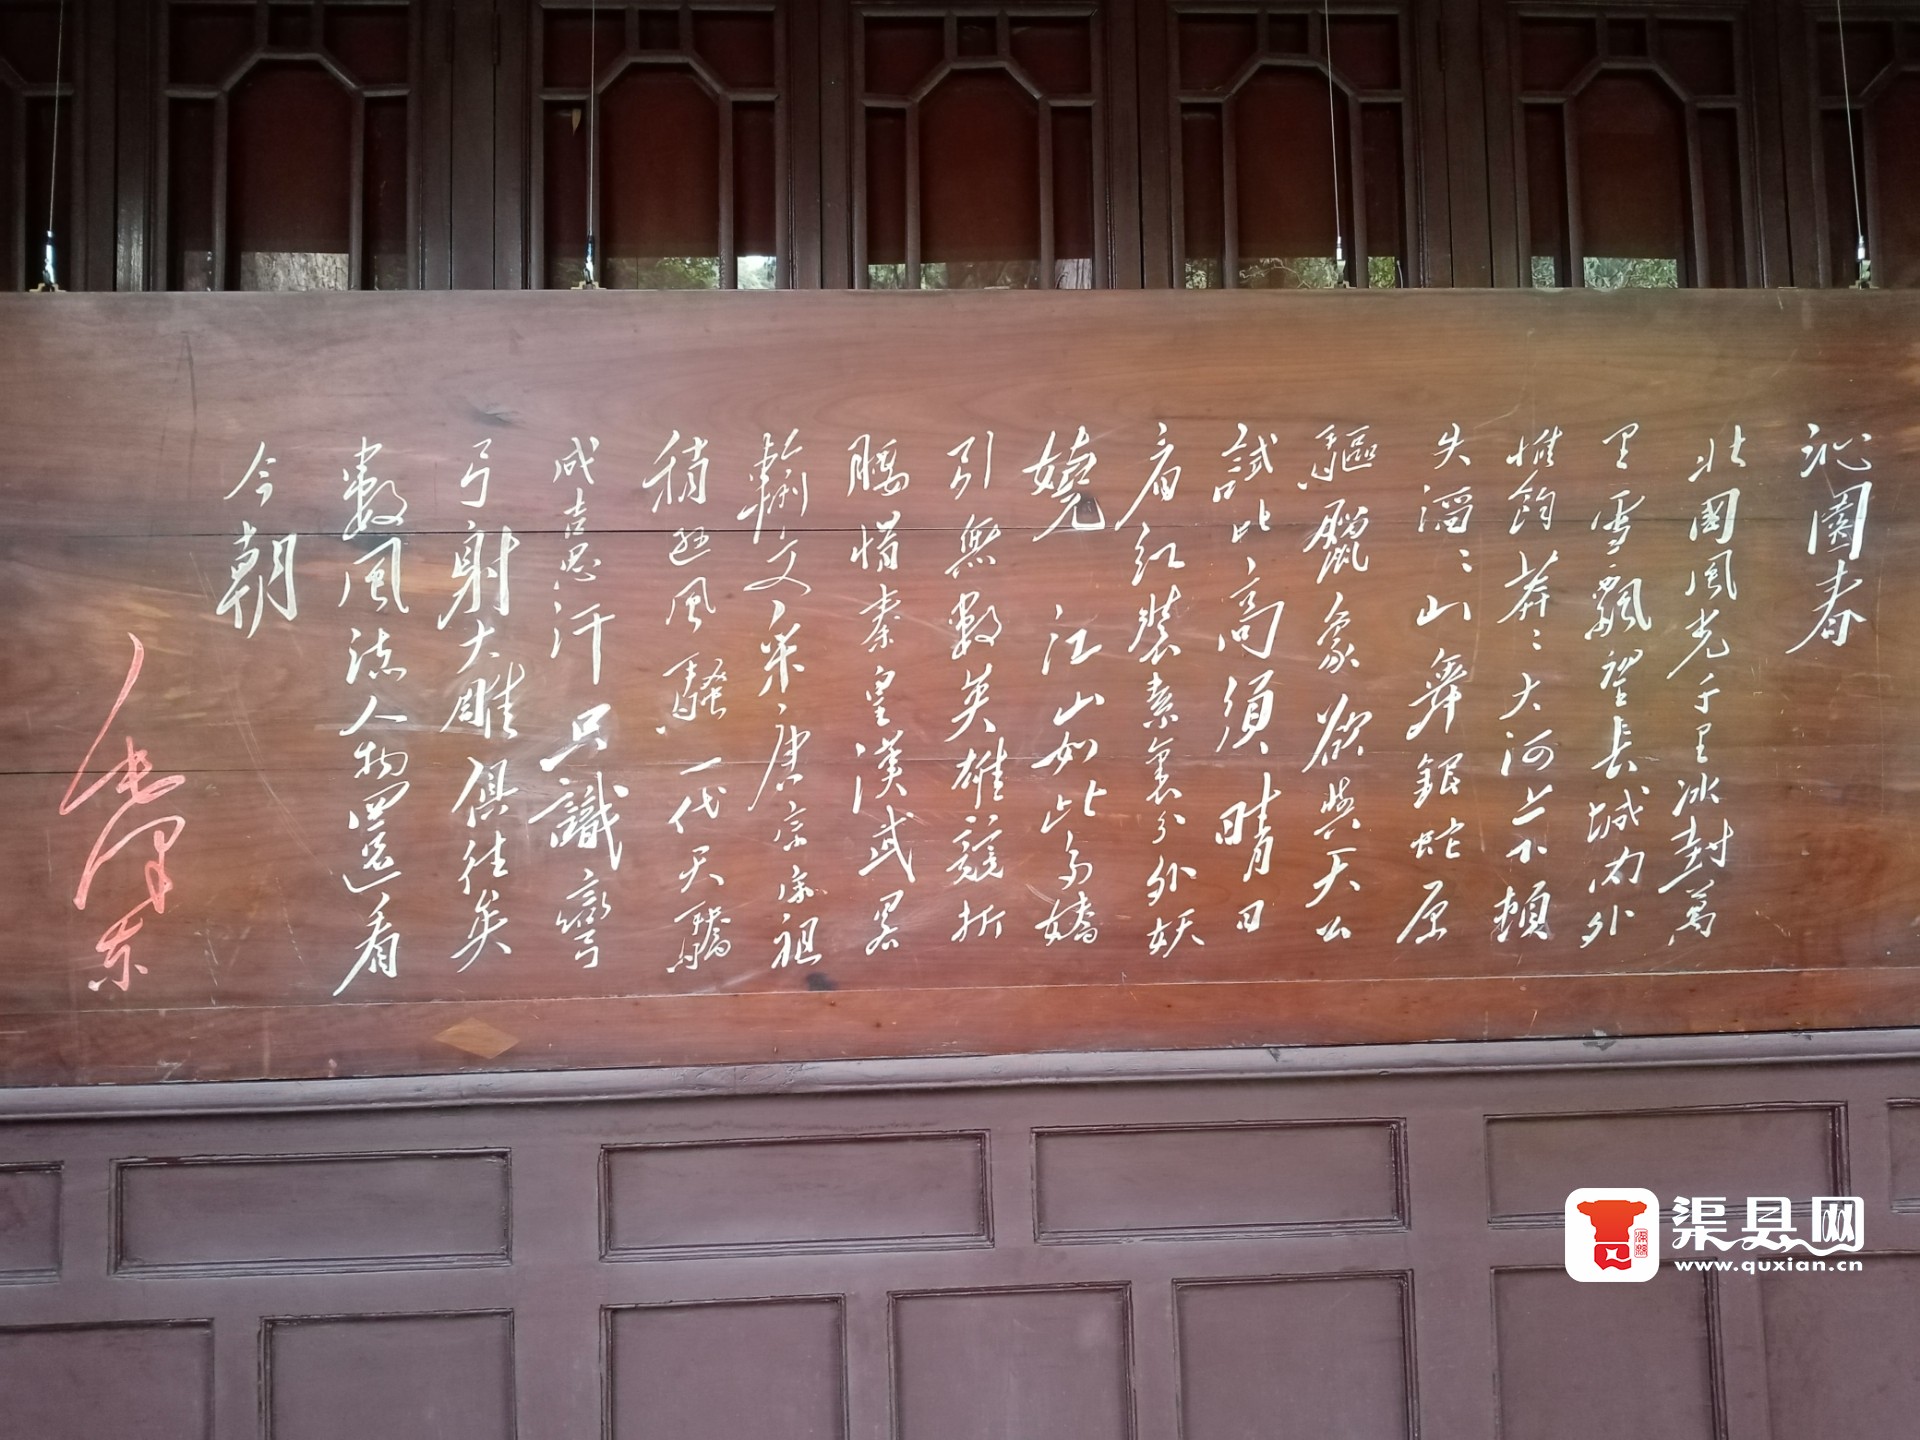 沁園春
北國風光千里冰封萬
里雪飄望長城內外
惟餘莽〻大河上下頓
失滔〻山舞銀蛇原
驅臘象欲與天公
試比高須晴日
看紅裝素裹分外妖
嬈 江山如此多嬌
引無數英雄競折
腰惜秦皇漢武略
輸文采唐宗宋祖
稍遜風騷一代天驕
成吉思汗只識彎
弓射大雕俱往矣
數風流人物還看
今朝
毛澤东
渠县网
www.quxian.cn